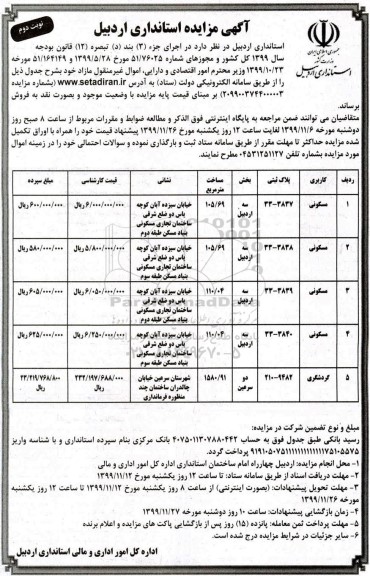 نوبت دوم
آگهی مزایده استانداری اردبیل
جمهوری اسلامی ایران
وزارت کشور
استانداری اردبیل
استانداری اردبیل در نظر دارد در اجرای جزء (۳) بند (د) تبصره (۱۲) قانون بودجه
سال ۱۳۹۹ کل کشور و مجوزهای شماره ۵۱/۷۶۰۲۵ مورخ ۱۳۹۹/۵/۲۸ و ۵۱/۱۶۴۱۴۹ مورخه
۱۳۹۹/۱۰/۲۳ وزیر محترم امور اقتصادی و دارایی، اموال غیرمنقول مازاد خود بشرح جدول ذیل
را از طریق سامانه الکترونیکی دولت (ستاد) به آدرس www.setadiran.ir (بشماره مزایده
۲۰۹۹۰۰۳۷۴۴۰۰۰۰۰۳) بر مبنای قیمت پایه مزایده با وضعیت موجود و بصورت نقد به فروش
برساند.
متقاضیان می توانند ضمن مراجعه به پایگاه اینترنتی فوق الذکر و مطالعه ضوابط و مقررات مربوط از ساعت ۸ صبح روز
دوشنبه مورخه ۱۳۹۹/۱۱/۶ لغایت ساعت ۱۲ روز یکشنبه مورخ ۱۳۹۹/۱۱/۲۶ پیشنهاد قیمت خود را همراه با اوراق تکمیل
شده مزایده حداکثر تا مهلت مقرر از طریق سامانه ستاد ثبت و بارگذاری نموده و سوالات احتمالی خود را در زمینه اموال
مورد مزایده بشماره تلفن ۰۴۵۳۱۲۵۱۱۲۷ مطرح نمایند.
ردیف کاربری پلاک ثبتی بخش مساحت مترمربع نشانی قیمت کارشناسی مبلغ سپرده
۱ مسکونی ۳۳-۳۸۳۷ سه اردبیل ۱۰۵/۶۹ خیابان سیزده آبان کوچه یاس دو ضلع شرقی ساختمان تجاری مسکونی بنیاد مسکن طبقه دوم ۶/۰۰۰/۰۰۰/۰۰۰ ریال ۶۰۰/۰۰۰/۰۰۰ ریال
۲ مسکونی ۳۳-۳۸۳۸ سه اردبیل ۱۰۵/۶۹ خیابان سیزده آبان کوچه یاس دو ضلع شرقی ساختمان تجاری مسکونی بنیاد مسکن طبقه سوم ۵/۸۰۰/۰۰۰/۰۰۰ ریال ۵۸۰/۰۰۰/۰۰۰ ریال
۳ مسکونی ۳۳-۳۸۳۹ سه اردبیل ۱۱۰/۰۴ خیابان سیزده آبان کوچه یاس دو ضلع شرقی ساختمان تجاری مسکونی بنیاد مسکن طبقه دوم ۶/۰۵۰/۰۰۰/۰۰۰ ریال ۶۰۵/۰۰۰/۰۰۰ ریال
۴ مسکونی ۳۳-۳۸۴۰ سه اردبیل ۱۱۰/۰۴ خیابان سیزده آبان کوچه یاس دو ضلع شرقی ساختمان تجاری مسکونی بنیاد مسکن طبقه سوم ۶/۲۵۰/۰۰۰/۰۰۰ ریال ۶۲۵/۰۰۰/۰۰۰ ریال
۵ گردشگری ۲۱۰-۹۴۸۲ دو سرعین ۱۵۸۰/۹۱ شهرستان سرعین خیابان چالدران ساختمان چند منظوره فرمانداری ۲۳۴/۱۹۷/۶۸۸/۰۰۰ ریال ۲۳/۴۱۹/۷۶۸/۸۰۰ ریال
مبلغ و نوع تضمین شرکت در مزایده:
رسید بانکی طبق جدول فوق به حساب ۴۰۷۵۰۱۱۳۰۷۸۸۰۴۴۲ بانک مرکزی بنام سپرده استانداری و با شناسه واریز
پرداخت گردد.
۱- محل انجام مزایده: اردبیل چهارراه امام ساختمان استانداری اداره کل امور اداری و مالی
۲- مهلت دریافت اسناد از طریق سامانه ستاد: تا ساعت ۱۲ روز یکشنبه مورخ ۱۳۹۹/۱۱/۱۲
۳- مهلت تحویل پیشنهادات: (بصورت اینترنتی) از ساعت ۸ روز یکشنبه مورخ ۱۳۹۹/۱۱/۱۲ تا ساعت ۱۲ روز یکشنبه
مورخه ۱۳۹۹/۱۱/۲۶
۴- زمان بازگشایی پیشنهادات: ساعت ۱۰ روز دوشنبه مورخه ۱۳۹۹/۱۱/۲۷
۵- مهلت پرداخت ثمن معامله: پانزده (۱۵) روز پس از بازگشایی پاکت های مزایده و اعلام برنده
۶- سایر جزئیات در شرایط مزایده درج شده است.
اداره کل امور اداری و مالی استانداری اردبیل